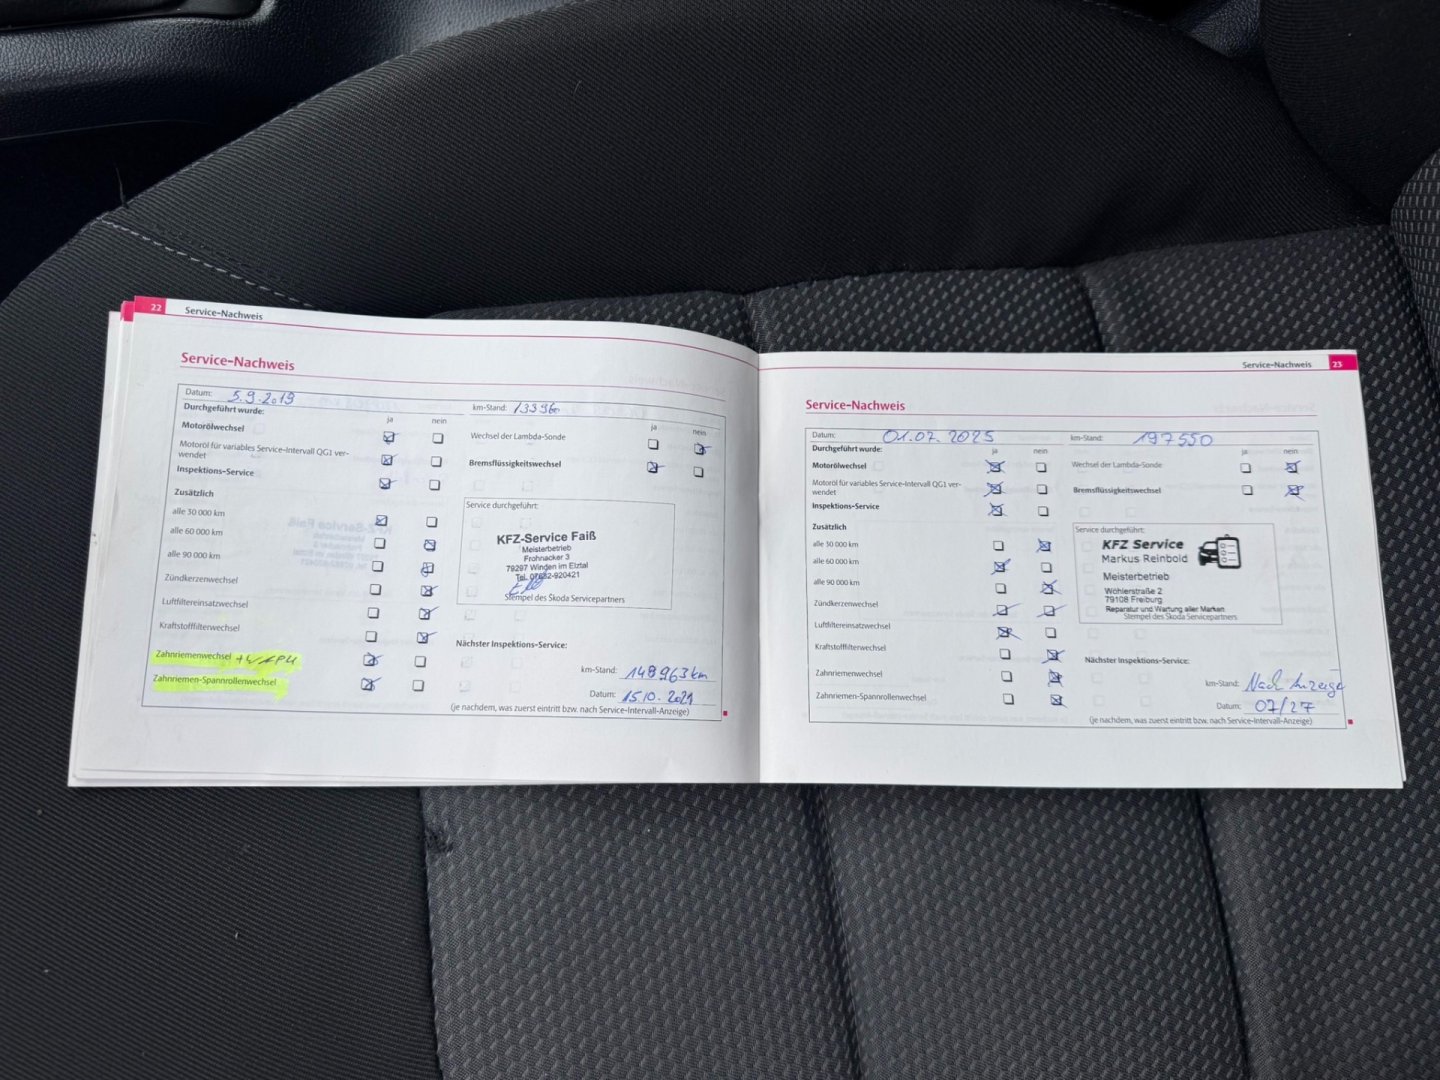 22 Service-Nachweis
Service-Nachweis
Datum: 5.9.2019 km-Stand: 13396
Durchgeführt wurde: ja nein ja nein
Motorölwechsel
Wechsel der Lambda-Sonde
Motoröl für variables Service-Intervall QG1 ver-
wendet
Bremsflüssigkeitswechsel
Inspektions-Service
Zusätzlich
alle 30 000 km
alle 60 000 km
alle 90 000 km
Zündkerzenwechsel
Luftfiltereinsatzwechsel
Kraftstofffilterwechsel
Zahnriemenwechsel
Zahnriemen-Spannrollenwechsel
Service durchgeführt:
KFZ-Service Faiß
Meisterbetrieb
Frohnacker 3
79297 Winden im Elztal
Tel. 07682-920421
Stempel des Škoda Servicepartners
Nächster Inspektions-Service:
km-Stand: 148963km
Datum: 15.10.2021
(je nachdem, was zuerst eintritt bzw. nach Service-Intervall-Anzeige)
Service-Nachweis 23
Service-Nachweis
Datum: 01.07.2025 km-Stand: 197550
Durchgeführt wurde: ja nein ja nein
Motorölwechsel
Wechsel der Lambda-Sonde
Motoröl für variables Service-Intervall QG1 ver-
wendet
Bremsflüssigkeitswechsel
Inspektions-Service
Zusätzlich
alle 30 000 km
alle 60 000 km
alle 90 000 km
Zündkerzenwechsel
Luftfiltereinsatzwechsel
Kraftstofffilterwechsel
Zahnriemenwechsel
Zahnriemen-Spannrollenwechsel
Service durchgeführt:
KFZ Service
Markus Reinbold
Meisterbetrieb
Wöhlerstraße 2
79108 Freiburg
Reparatur und Wartung aller Marken
Stempel des Škoda Servicepartners
Nächster Inspektions-Service:
km-Stand: Nach Anzeige
Datum: 07/27
(je nachdem, was zuerst eintritt bzw. nach Service-Intervall-Anzeige)